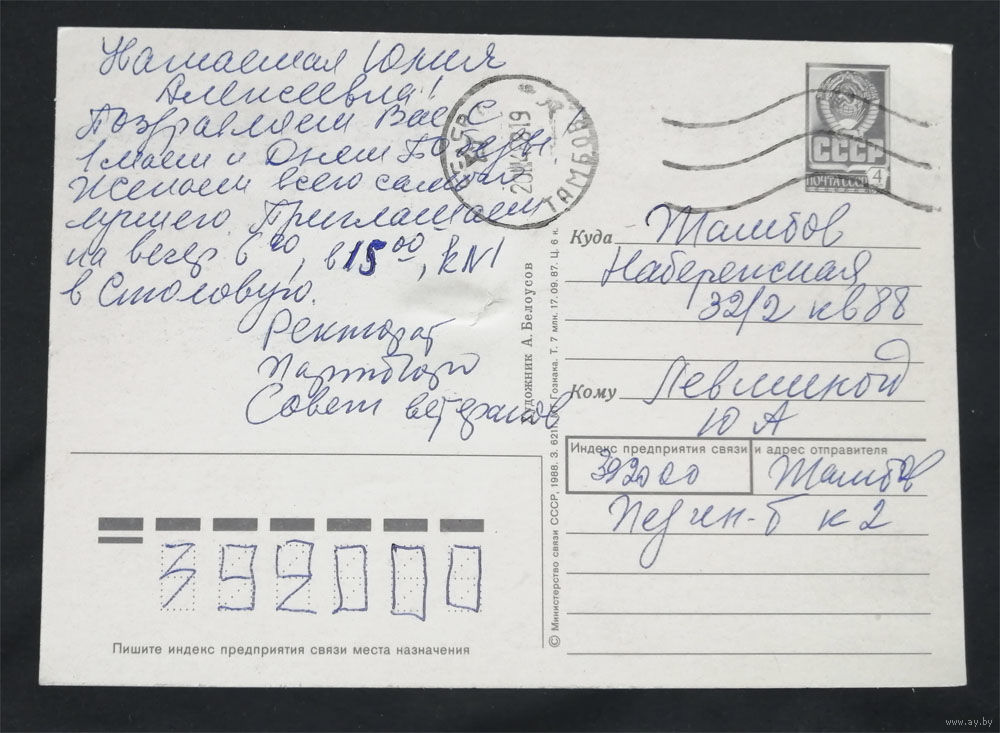 Юлия
Алексеевна!
Поздравляем Вас с
1 маем и Днем Победы
Желаем всего самого
лучшего. Приглашаем
на вечер 6 00, в 15 00, к N1
в Столовую.
Ректорат
Партбюро
Совет ветеранов
СССР
ТАМБОВ
СССР
ПОЧТА СССР 4
Куда Тамбов
Набережная
32/2 кв 88
Кому
Ю А
Индекс предприятия связи и адрес отправителя
392000 Тамбов
Пединт-т к 2
392000
Пишите индекс предприятия связи места назначения
Художник А. Белоусов
© Министерство связи СССР, 1988. З. 6211. Гознака. Т. 7 млн. 17.09.87. Ц. 6 к.
www.ay.by